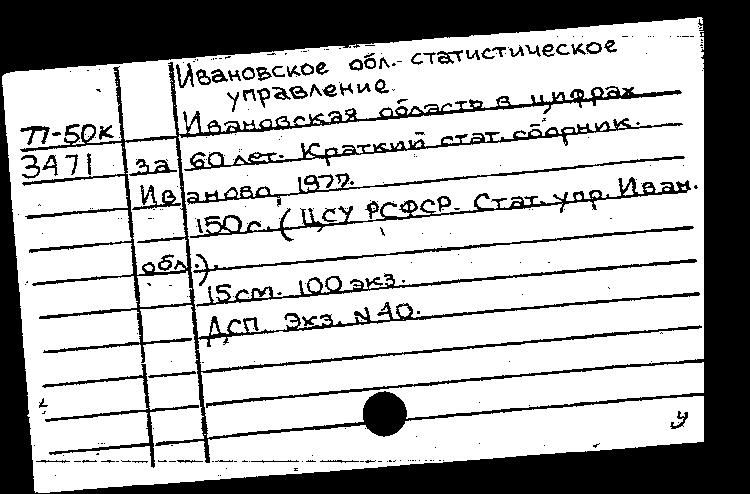 Ивановское обл. статистическое
управление.
77-50к Ивановская область в цифрах
3471 за 60 лет. Краткий стат. сборник.
Иваново, 1977.
150с. (ЦСУ РСФСР. Стат. упр. Иван.
обл.).
15см. 100 экз.
ДСП. Экз. N40.
у